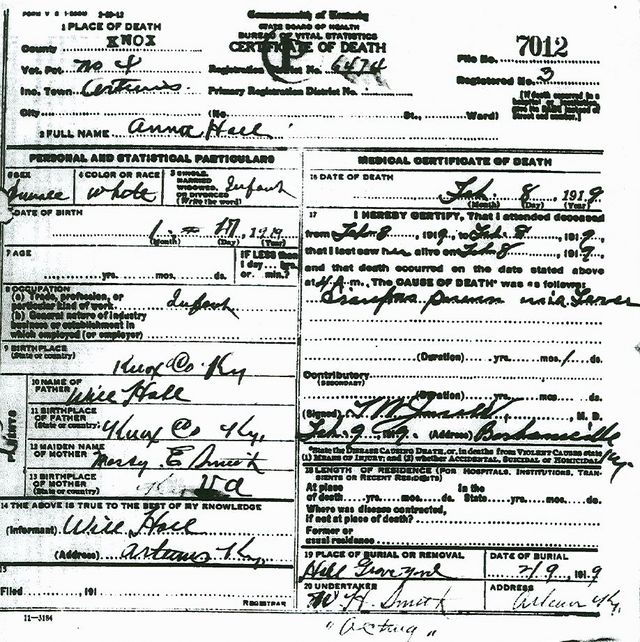 FORM V S 1-500M 2-20-12
Commonwealth of Kentucky
STATE BOARD OF HEALTH
BUREAU OF VITAL STATISTICS
CERTIFICATE OF DEATH
1 PLACE OF DEATH
County KNOX
Vot. Pct No 4
Registration District No. 6474
Inc. Town Artemus
Primary Registration District No.
City (No. St., Ward)
File No. 7012
Registered No. 3
[If death occurred in a hospital or institution, give its NAME instead of street and number.]
2 FULL NAME Anna Hall
PERSONAL AND STATISTICAL PARTICULARS
3 SEX
4 COLOR OR RACE White
5 SINGLE, MARRIED, WIDOWED, OR DIVORCED (Write the word) Infant
6 DATE OF BIRTH
1 = 17, 1919
(Month) (Day) (Year)
7 AGE
yrs. mos. ds.
IF LESS than 1 day hrs. or min.?
8 OCCUPATION
(a) Trade, profession, or particular kind of work Infant
(b) General nature of industry
business or establishment in
which employed (or employer)
9 BIRTHPLACE
(State or country)
Knox Co Ky
10 NAME OF FATHER
Will Hall
11 BIRTHPLACE OF FATHER
(State or country) Knox Co Ky.
12 MAIDEN NAME OF MOTHER Mary E Smith
13 BIRTHPLACE OF MOTHER Va
14 THE ABOVE IS TRUE TO THE BEST OF MY KNOWLEDGE
(Informant) Will Hall
(Address) Artemus Ky.
15
Filed , 191
REGISTRAR
11-3184
MEDICAL CERTIFICATE OF DEATH
16 DATE OF DEATH
Feb 8, 1919
(Month) (Day) (Year)
17 I HEREBY CERTIFY, That I attended deceased
from Feb 8, 1919, to Feb 8, 1919,
that I last saw h alive on Feb 8, 1919,
and that death occurred on the date stated above
at 4 A.m. The CAUSE OF DEATH* was as follows:
(Duration) yrs. mos. 1 ds.
Contributory
(SECONDARY)
(Duration) yrs. mos. ds.
(Signed) M. D.
Feb. 9, 1919. (Address) Barbourville Ky.
*State the DISEASE CAUSING DEATH, or, in deaths from VIOLENT CAUSES state
(1) MEANS OF INJURY; and (2) whether ACCIDENTAL, SUICIDAL or HOMICIDAL
18 LENGTH OF RESIDENCE (FOR HOSPITALS, INSTITUTIONS, TRANSIENTS OR RECENT RESIDENTS)
At place of death yrs. mos. ds. In the State yrs. mos. ds.
Where was disease contracted,
if not at place of death?
Former or
usual residence
19 PLACE OF BURIAL OR REMOVAL
Hall Graveyard
DATE OF BURIAL
2/9, 1919
20 UNDERTAKER
W H Smith
ADDRESS
Artemus Ky.
"Acting"